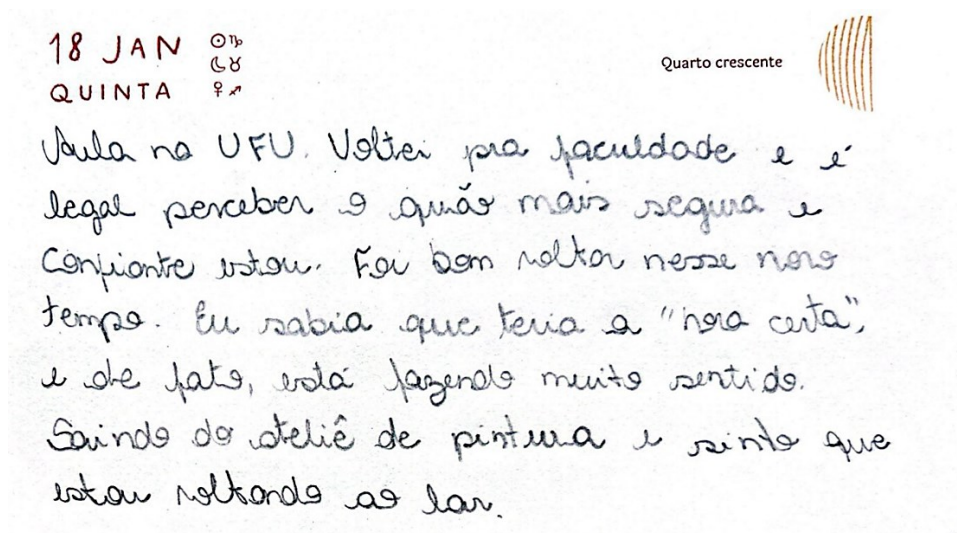 18 JAN ☉♑
☾♉
QUINTA ♀♐
Quarto crescente
Aula na UFU. Voltei pra faculdade e é
legal perceber o quão mais segura e
confiante estou. Foi bom voltar nesse novo
tempo. Eu sabia que teria a "hora certa",
e de fato, está fazendo muito sentido.
Saindo do ateliê de pintura e sinto que
estou voltando ao lar.